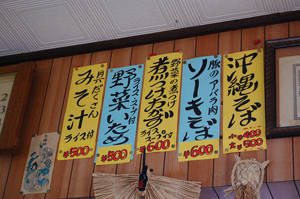 沖縄そば
小 ¥400
大 ¥500
豚のアバラ肉
ソーキそば
¥600
野菜の煮つけ
煮つけおかず
ライス、スープ付
¥600
ライス・スープ付
野菜いため
¥500
具だくさん
みそ汁
ライス付
¥500